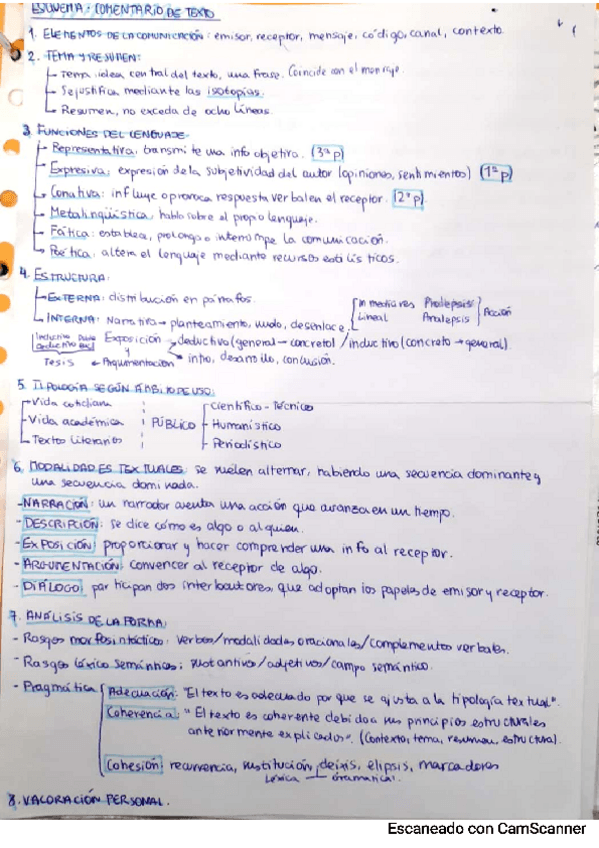 ESQUEMA: COMENTARIO DE TEXTO
1. ELEMENTOS DE LA COMUNICACIÓN: emisor, receptor, mensaje, código, canal, contexto.
2. TEMA Y RESUMEN:
Tema: idea central del texto, una frase. Coincide con el mensaje
Se justifica mediante las isotopías.
Resumen, no exceda de ocho líneas.
3. FUNCIONES DEL LENGUAJE
Representativa: transmite una info objetiva. (3ª p)
Expresiva: expresión de la subjetividad del autor (opiniones, sentimientos) (1ª p)
Conativa: influye o provoca respuesta verbal en el receptor. (2ª p)
Metalingüística, habla sobre el propio lenguaje.
Fática: establece, prolonga o interrumpe la comunicación.
Poética, altera el lenguaje mediante recursos estilísticos.
4. ESTRUCTURA:
EXTERNA: distribución en párrafos.
INTERNA: Narrativa → planteamiento, nudo, desenlace. In medias res Prolepsis
Lineal Analepsis Acción
Exposición → deductiva (general → concreto) / inductivo (concreto → general).
Tesis ← Argumentación intro, desarrollo, conclusión.
5. TIPOLOGÍA SEGÚN ÁMBITO DE USO:
Vida cotidiana Científico - Técnico
Vida académica PÚBLICO Humanístico
Textos literarios Periodístico
6. MODALIDADES TEXTUALES: se suelen alternar, habiendo una secuencia dominante y
una secuencia dominada.
- NARRACIÓN: un narrador cuenta una acción que avanza en un tiempo.
- DESCRIPCIÓN: se dice cómo es algo o alguien.
- EXPOSICIÓN: proporcionar y hacer comprender una info al receptor.
- ARGUMENTACIÓN: convencer al receptor de algo.
- DIÁLOGO: participan dos interlocutores, que adoptan los papeles de emisor y receptor.
7. ANÁLISIS DE LA FORMA:
- Rasgos morfosintácticos: verbos/modalidades oracionales/complementos verbales.
- Rasgos léxico semánticos: sustantivos/adjetivos/campo semántico.
- Pragmática Adecuación: "El texto es adecuado por que se ajusta a la tipología textual".
Coherencia: "El texto es coherente debido a sus principios estructurales
anteriormente explicados". (Contexto, tema, resumen, estructura).
Cohesión: recurrencia, sustitución, deixis, elipsis, marcadores
Léxica gramatical.
8. VALORACIÓN PERSONAL.
Escaneado con CamScanner